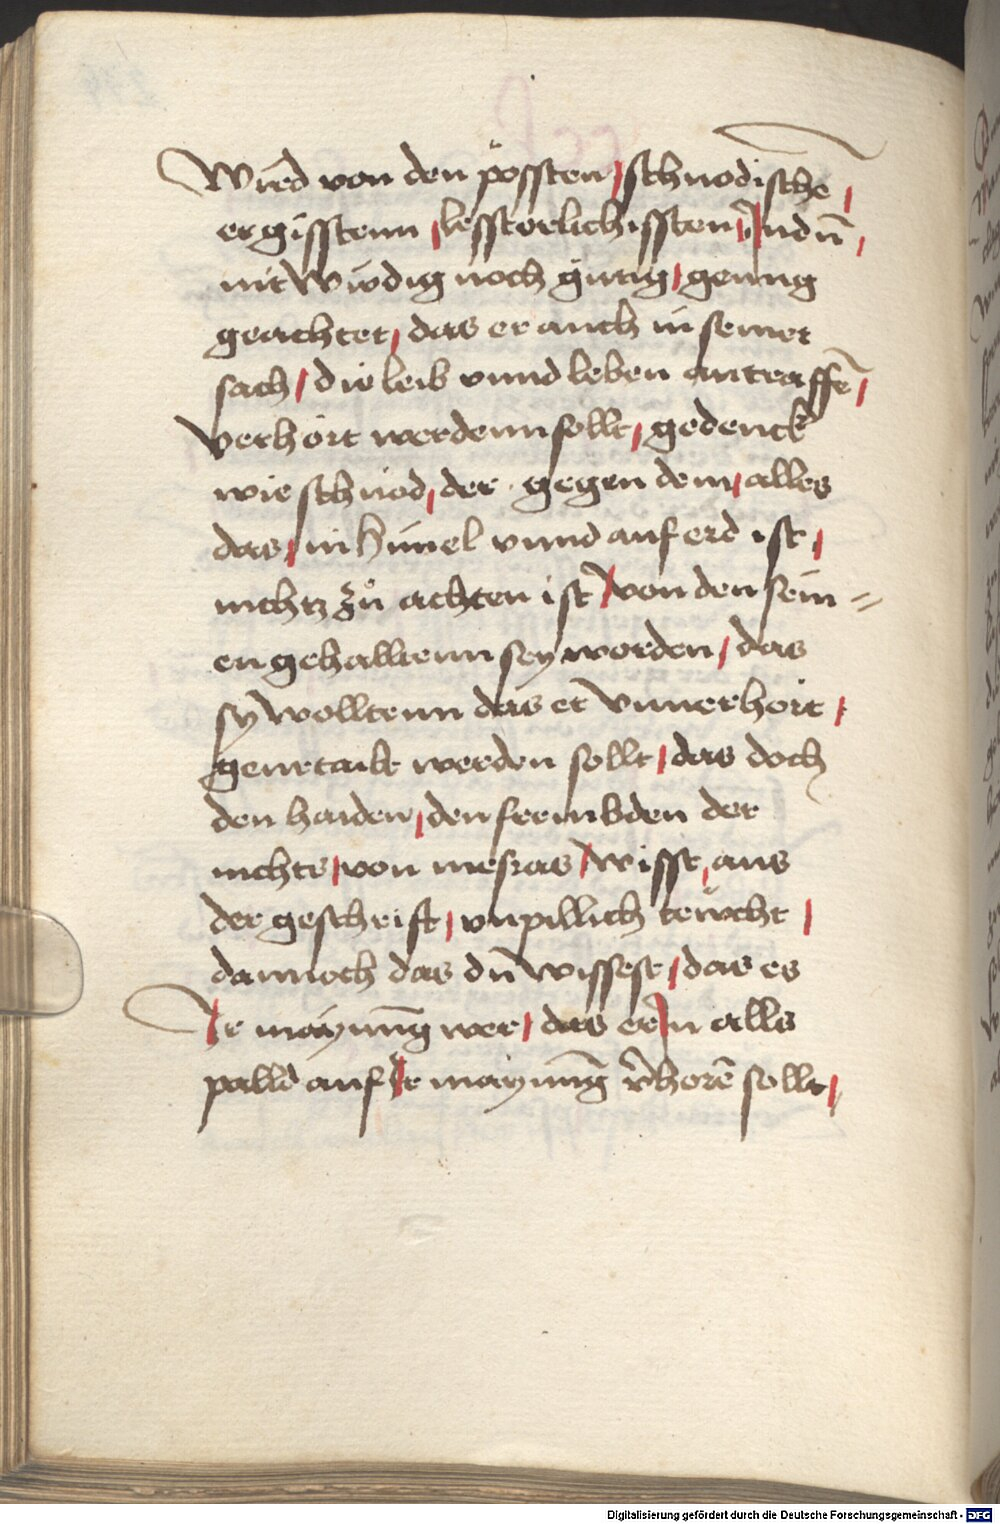 Wird von den pössten / schnodische /
ergisstenn / lesstorlichissten / Judn̄ /
nit Wirdig noch gu̇tig / genug
geachtet / das er auch in seiner
sach / die leib vnnd leben antreaffē /
verhört werdenn sollt / gedenck
wie schnöd / der gegen dem / alles
das / in himel vnnd auf erd ist /
nichtz zů achten ist / von den sein=
en gehalltenn sey worden / das
sy wolltenn das er vnuerhört /
geurtailt werden sollt / das doch
den haiden / den frembden der
nichts / von mesias / wisst / aus
der geschrift / vnpillich deücht /
dannoch das du̅ wissest / das es
Jr maynu̅g wer / das er Jn alls
palld auf Jr maynung v̄horē sollt /
Digitalisierung gefördert durch die Deutsche Forschungsgemeinschaft - DFG